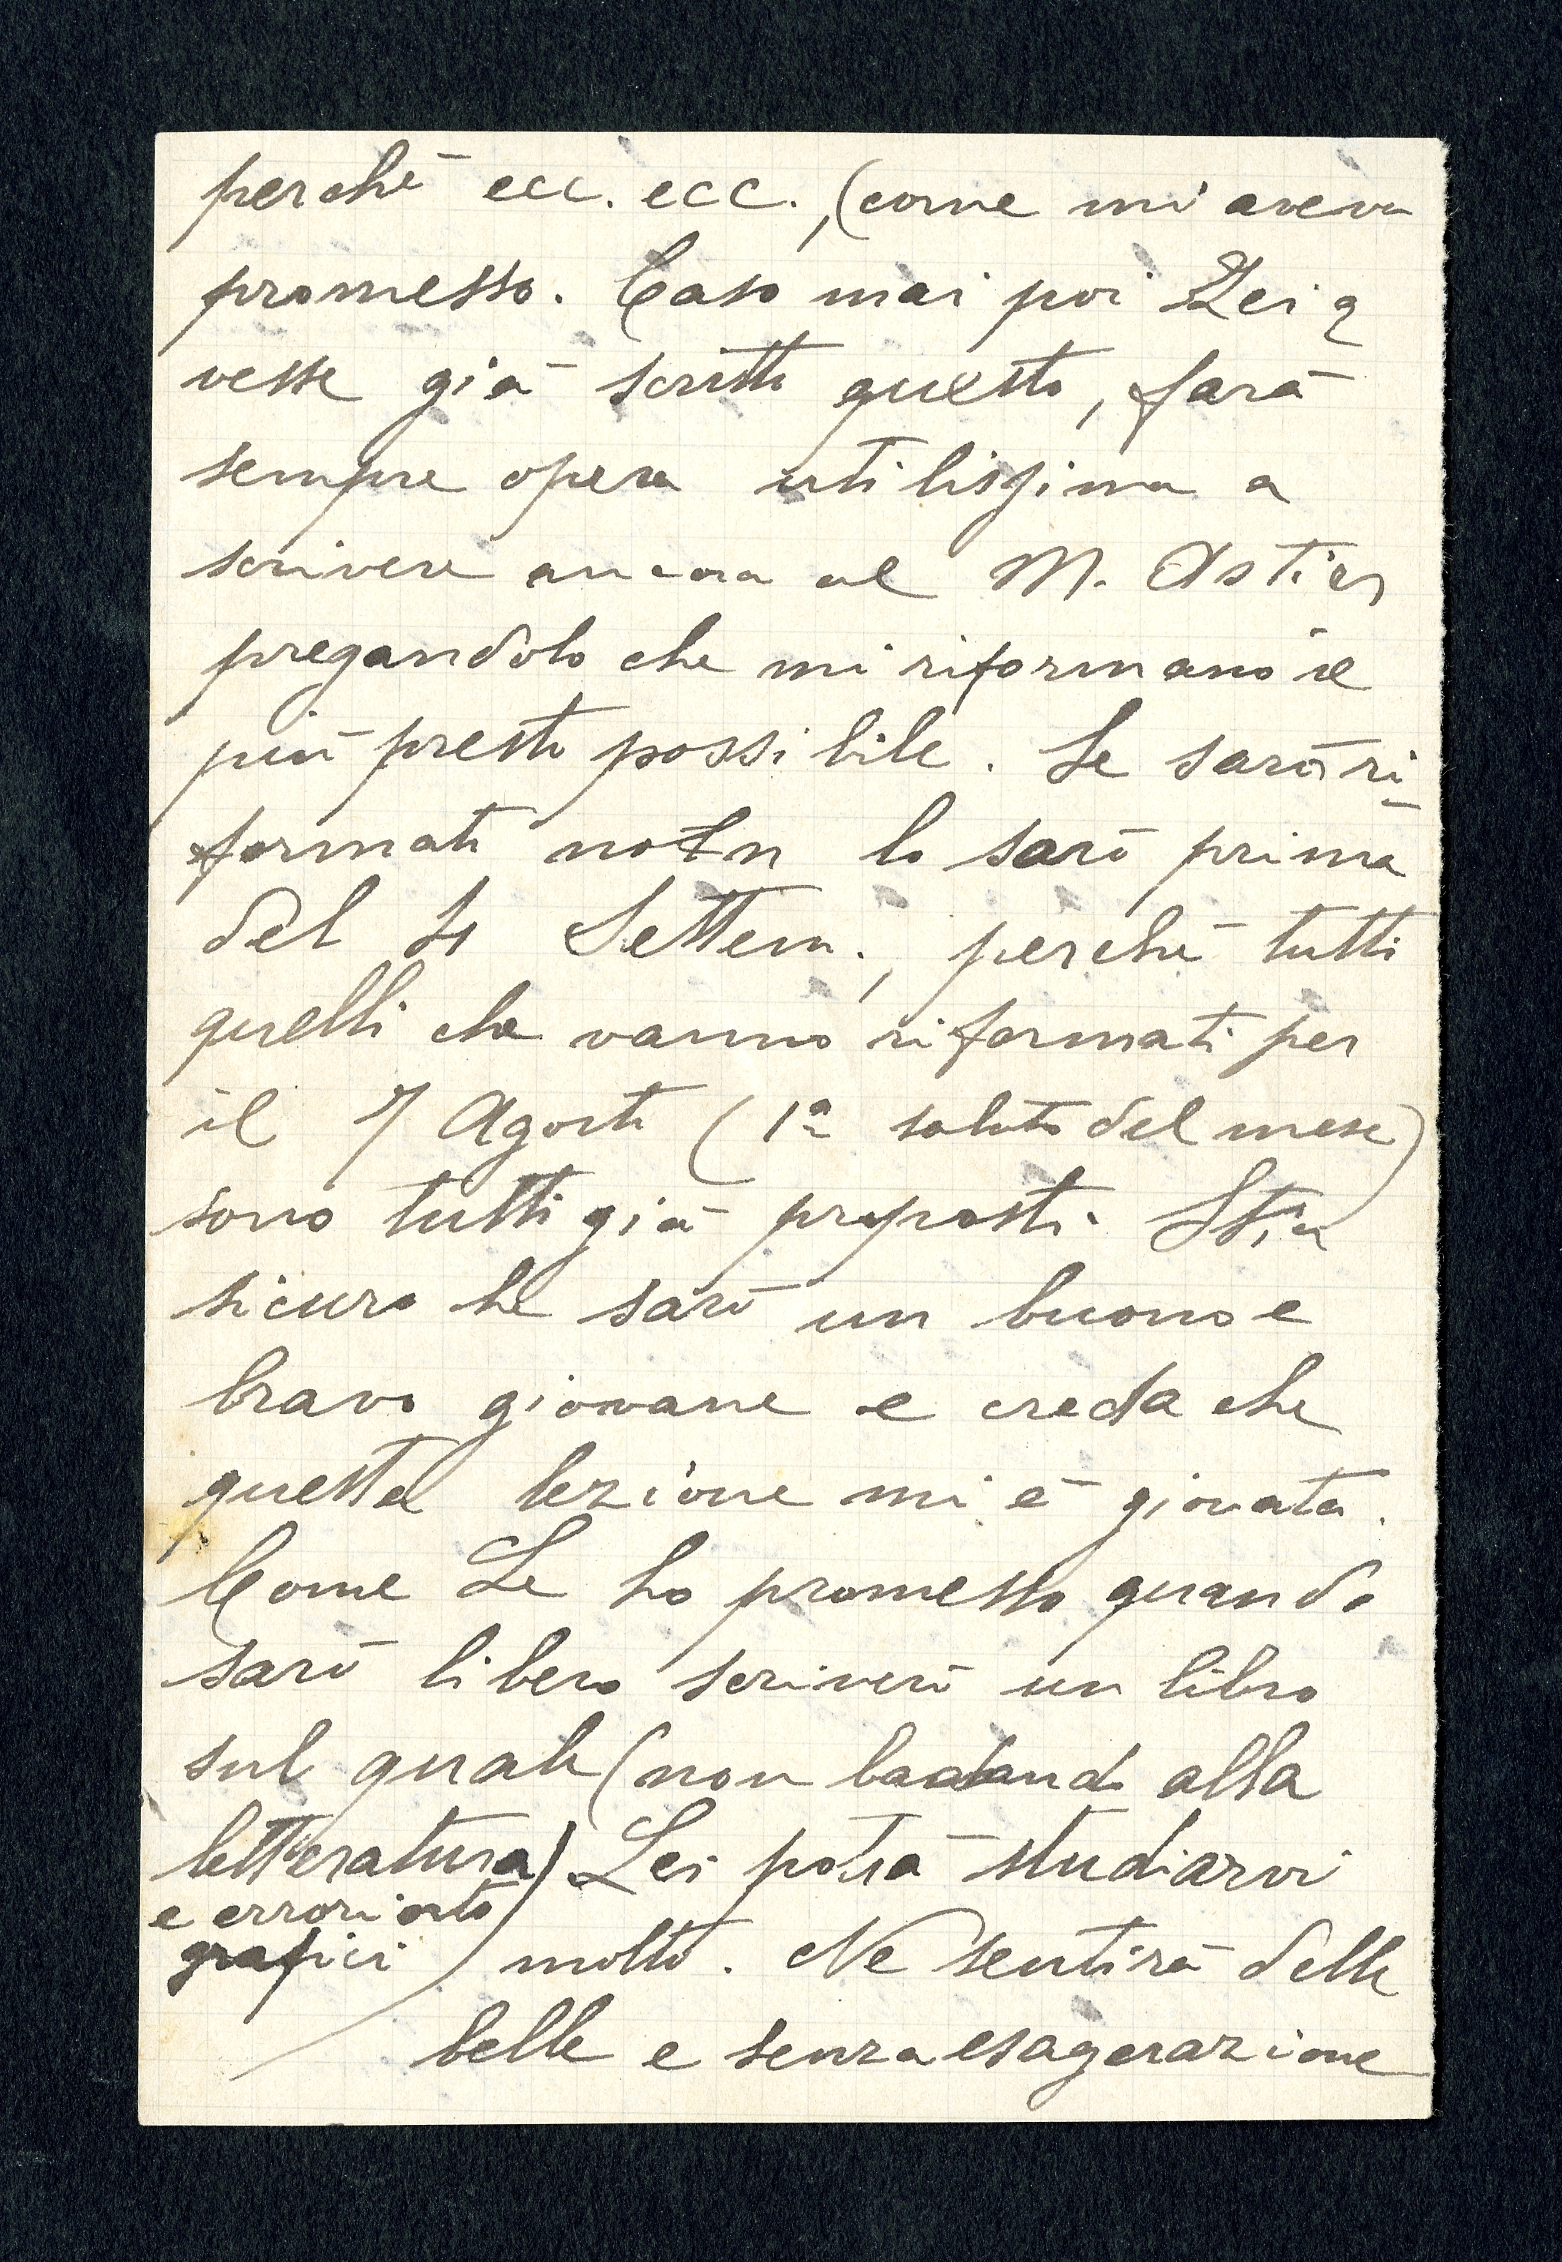 perchè ecc. ecc., (come mi aveva
promesso. Caso mai poi Lei a
vesse già scritto questo, farà
sempre opera utilissima a
scrivere ancora al M. Astier
pregandolo che mi riformano il
più presto possibile. Se sarò ri-
formato non lo sarò prima
del 4 Settem., perchè tutti
quelli che vanno riformati per
il 7 Agosto (1ª saluto del mese)
sono tutti già proposti. Stia
sicuro che sarò un buono e
bravo giovane e creda che
questa lezione mi è giovata.
Come Le ho promesso quando
sarò libero scriverò un libro
sul quale (non badando alla
letteratura) Lei potrà studiarvi
e errori orto
grafici) molto. Ne sentirà delle
belle e senza esagerazione